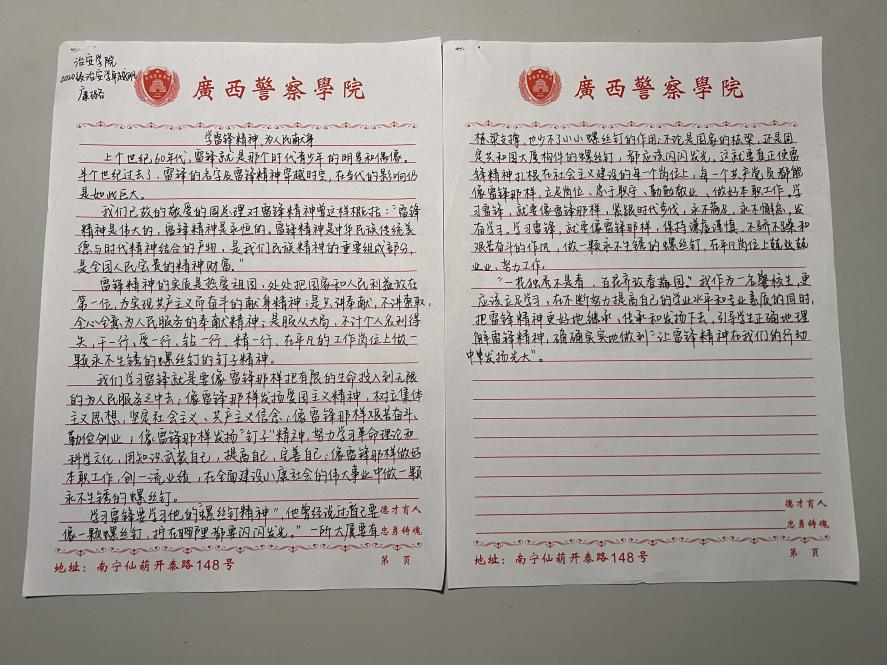 治安学院
2020级治安学
康
廣西警察學院
学雷锋精神,为人民献青春
上个世纪60年代,雷锋就是那个时代青少年的明星和偶像。
半个世纪过去了,雷锋的名字及雷锋精神穿越时空,在当代的影响仍
是如此巨大。
我们已故的敬爱的周总理对雷锋精神曾这样概括:"雷锋
精神是伟大的,雷锋精神是永恒的,雷锋精神是中华民族传统美
德与时代精神结合的产物,是我们民族精神的重要组成部分,
是全国人民宝贵的精神财富。"
雷锋精神的实质是热爱祖国,处处把国家和人民利益放在
第一位,为实现共产主义而奋斗的献身精神;是只讲奉献,不讲索取,
全心全意为人民服务的奉献精神;是服从大局,不计个人名利得
失,干一行,爱一行,钻一行,精一行,在平凡的工作岗位上做一
颗永不生锈的螺丝钉的钉子精神。
我们学习雷锋就是要像雷锋那样把有限的生命投入到无限
的为人民服务之中去;像雷锋那样发扬爱国主义精神,树立集体
主义思想,坚定社会主义、共产主义信念;像雷锋那样艰苦奋斗、
勤俭创业;像雷锋那样发扬"钉子"精神,努力学习革命理论和
科学文化,用知识武装自己,提高自己,完善自己;像雷锋那样做好
本职工作,创一流业绩,在全面建设小康社会的伟大事业中做一颗
永不生锈的螺丝钉。
学习雷锋要学习他的"螺丝钉精神",他曾经说过"自己要
像一颗螺丝钉,拧在哪里都要闪闪发光。"一所大厦要有
德才育人
忠勇铸魂
地址:南宁仙葫开泰路148号
第 页
廣西警察學院
栋梁支撑,也少不了小小螺丝钉的作用;不论是国家的栋梁,还是固
定共和国大厦构件的螺丝钉,都应该闪闪发光。这就要真正使雷
锋精神扎根在社会主义建设的每个岗位上,每一个共产党员都能
像雷锋那样,立足岗位、忠于职守、勤勉敬业、做好本职工作。学
习雷锋,就要像雷锋那样,紧跟时代步伐,永不满足,永不懈怠,发
奋学习。学习雷锋,就要像雷锋那样,保持谦虚谨慎、不骄不躁和
艰苦奋斗的作风,做一颗永不生锈的螺丝钉,在平凡岗位上兢兢
业业,努力工作。
"一花独秀不是春,百花齐放春满园。"我作为一名警校生,更
应该立足学习,在不断努力提高自己的学业水平和专业素质的同时,
把雷锋精神更好地继承、传承和发扬下去,引导学生正确地理
解雷锋精神,确确实实地做到"让雷锋精神在我们的行动
中发扬光大"。
德才育人
忠勇铸魂
地址:南宁仙葫开泰路148号
第 页